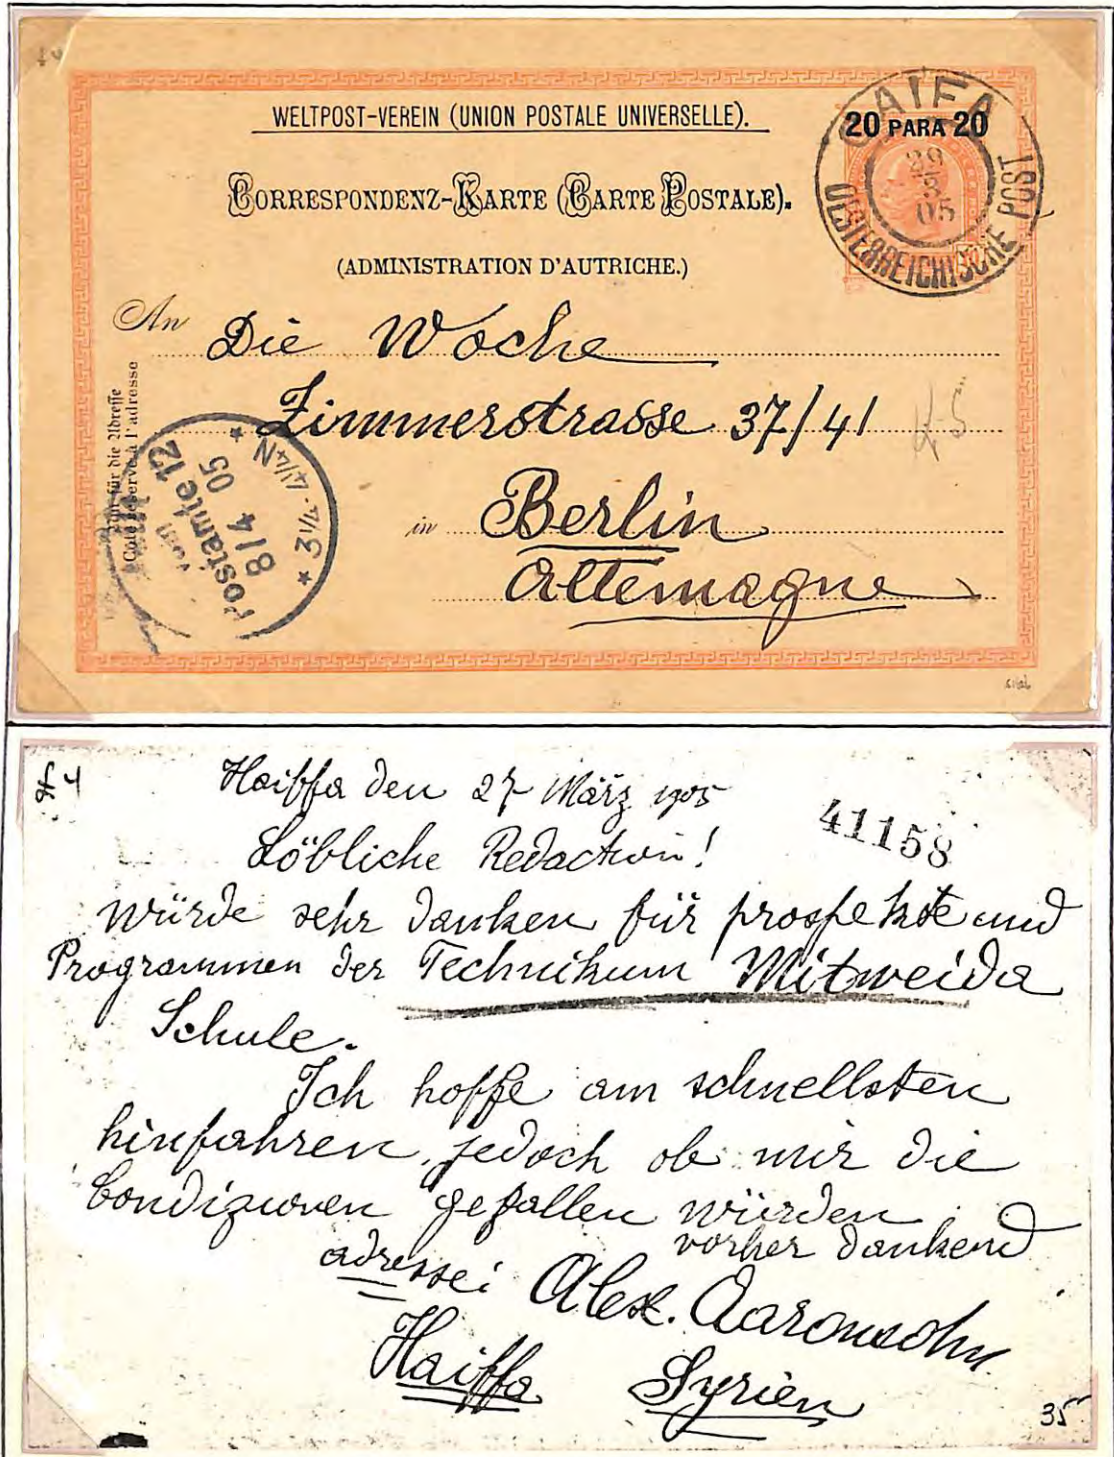 WELTPOST-VEREIN (UNION POSTALE UNIVERSELLE).
CORRESPONDENZ-KARTE (CARTE POSTALE).
(ADMINISTRATION D'AUTRICHE.)
20 PARA 20
CAIFA
29
3
05
OESTERREICHISCHE POST
An Die Woche
Zimmerstrasse 37/41
in Berlin
Allemagne
K5
für die Adresse
Côté réservé à l'adresse
vom
Postamte 12
8/4
05
* 3 1/4 - 4 1/4 N *
# 4
Haiffa den 27 März 1905
41158
Löbliche Redaction!
würde sehr danken für prospekte und
Programmen der Technikum Mitweida
Schule.
Ich hoffe am schnellsten
hinfahren, jedoch ob mir die
Condizionen gefallen würden.
vorher dankend
adresse: Alex. Aaronsohn
Haiffa Syrien
35